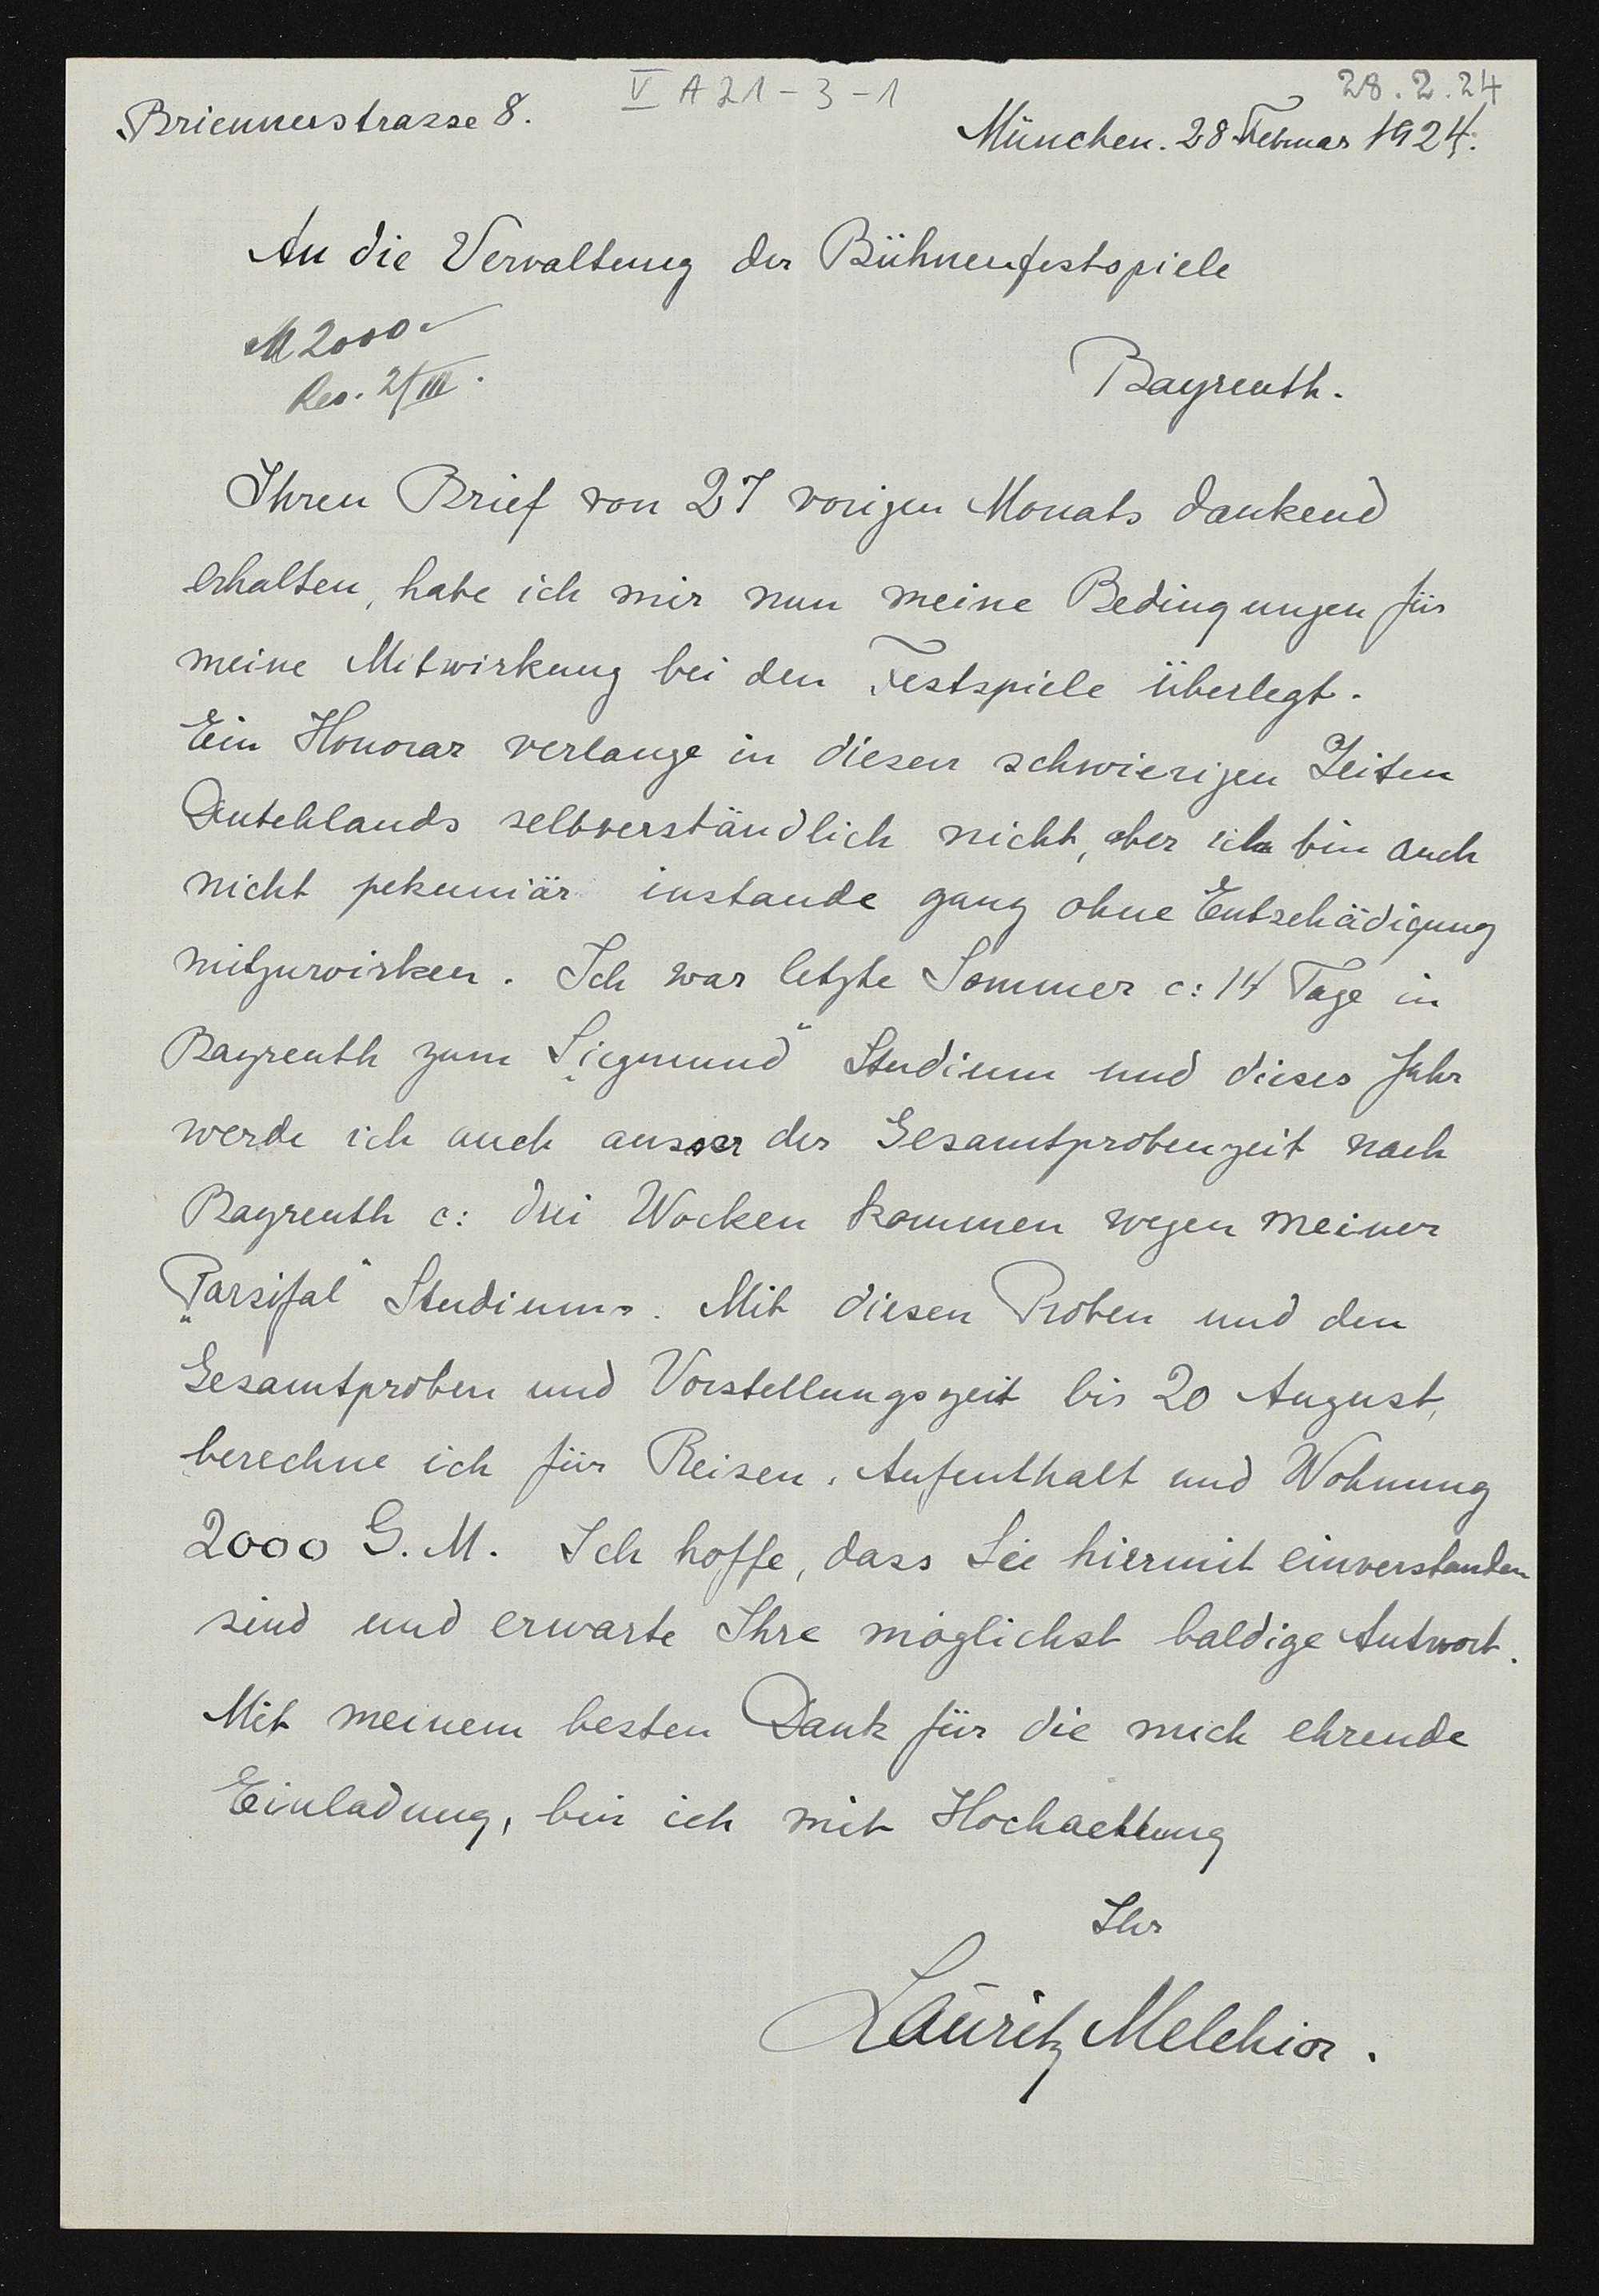 V A 21 - 3 - 1
28. 2. 24
Briennerstrasse 8.
München. 28 Februar 1924.
An die Vervaltung der Bühnenfestspiele
M 2000.-
2/III.
Bayreuth.
Ihren Brief von 27 vorigen Monats dankend
erhalten, habe ich mir nun meine Bedingungen für
meine Mitwirkung bei den Festspiele überlegt.
Ein Honorar verlange in diesen schwierigen Zeiten
Deutchlands selbverständlich nicht, aber ich bin auch
nicht pekuniär instande ganz ohne Entschädigung
mitzuwirken. Ich war letzte Sommer c: 14 Tage in
Bayreuth zum „Siegmund" Studium und dieses Jahr
werde ich auch ausser der Gesamtprobenzeit nach
Bayreuth c: drei Wocken kommen wegen meiner
„Parsifal" Studiums. Mit diesen Proben und den
Gesamtproben und Vorstellungszeit bis 20 August,
berechne ich für Reisen, Aufenthalt und Wohnung
2000 G. M. Ich hoffe, dass Sie hiermit einverstanden
sind und erwarte Ihre möglichst baldige Antwort.
Mit meinem besten Dank für die mich ehrende
Einladung, bin ich mit Hochachtung
Ihr
Lauritz Melchior.